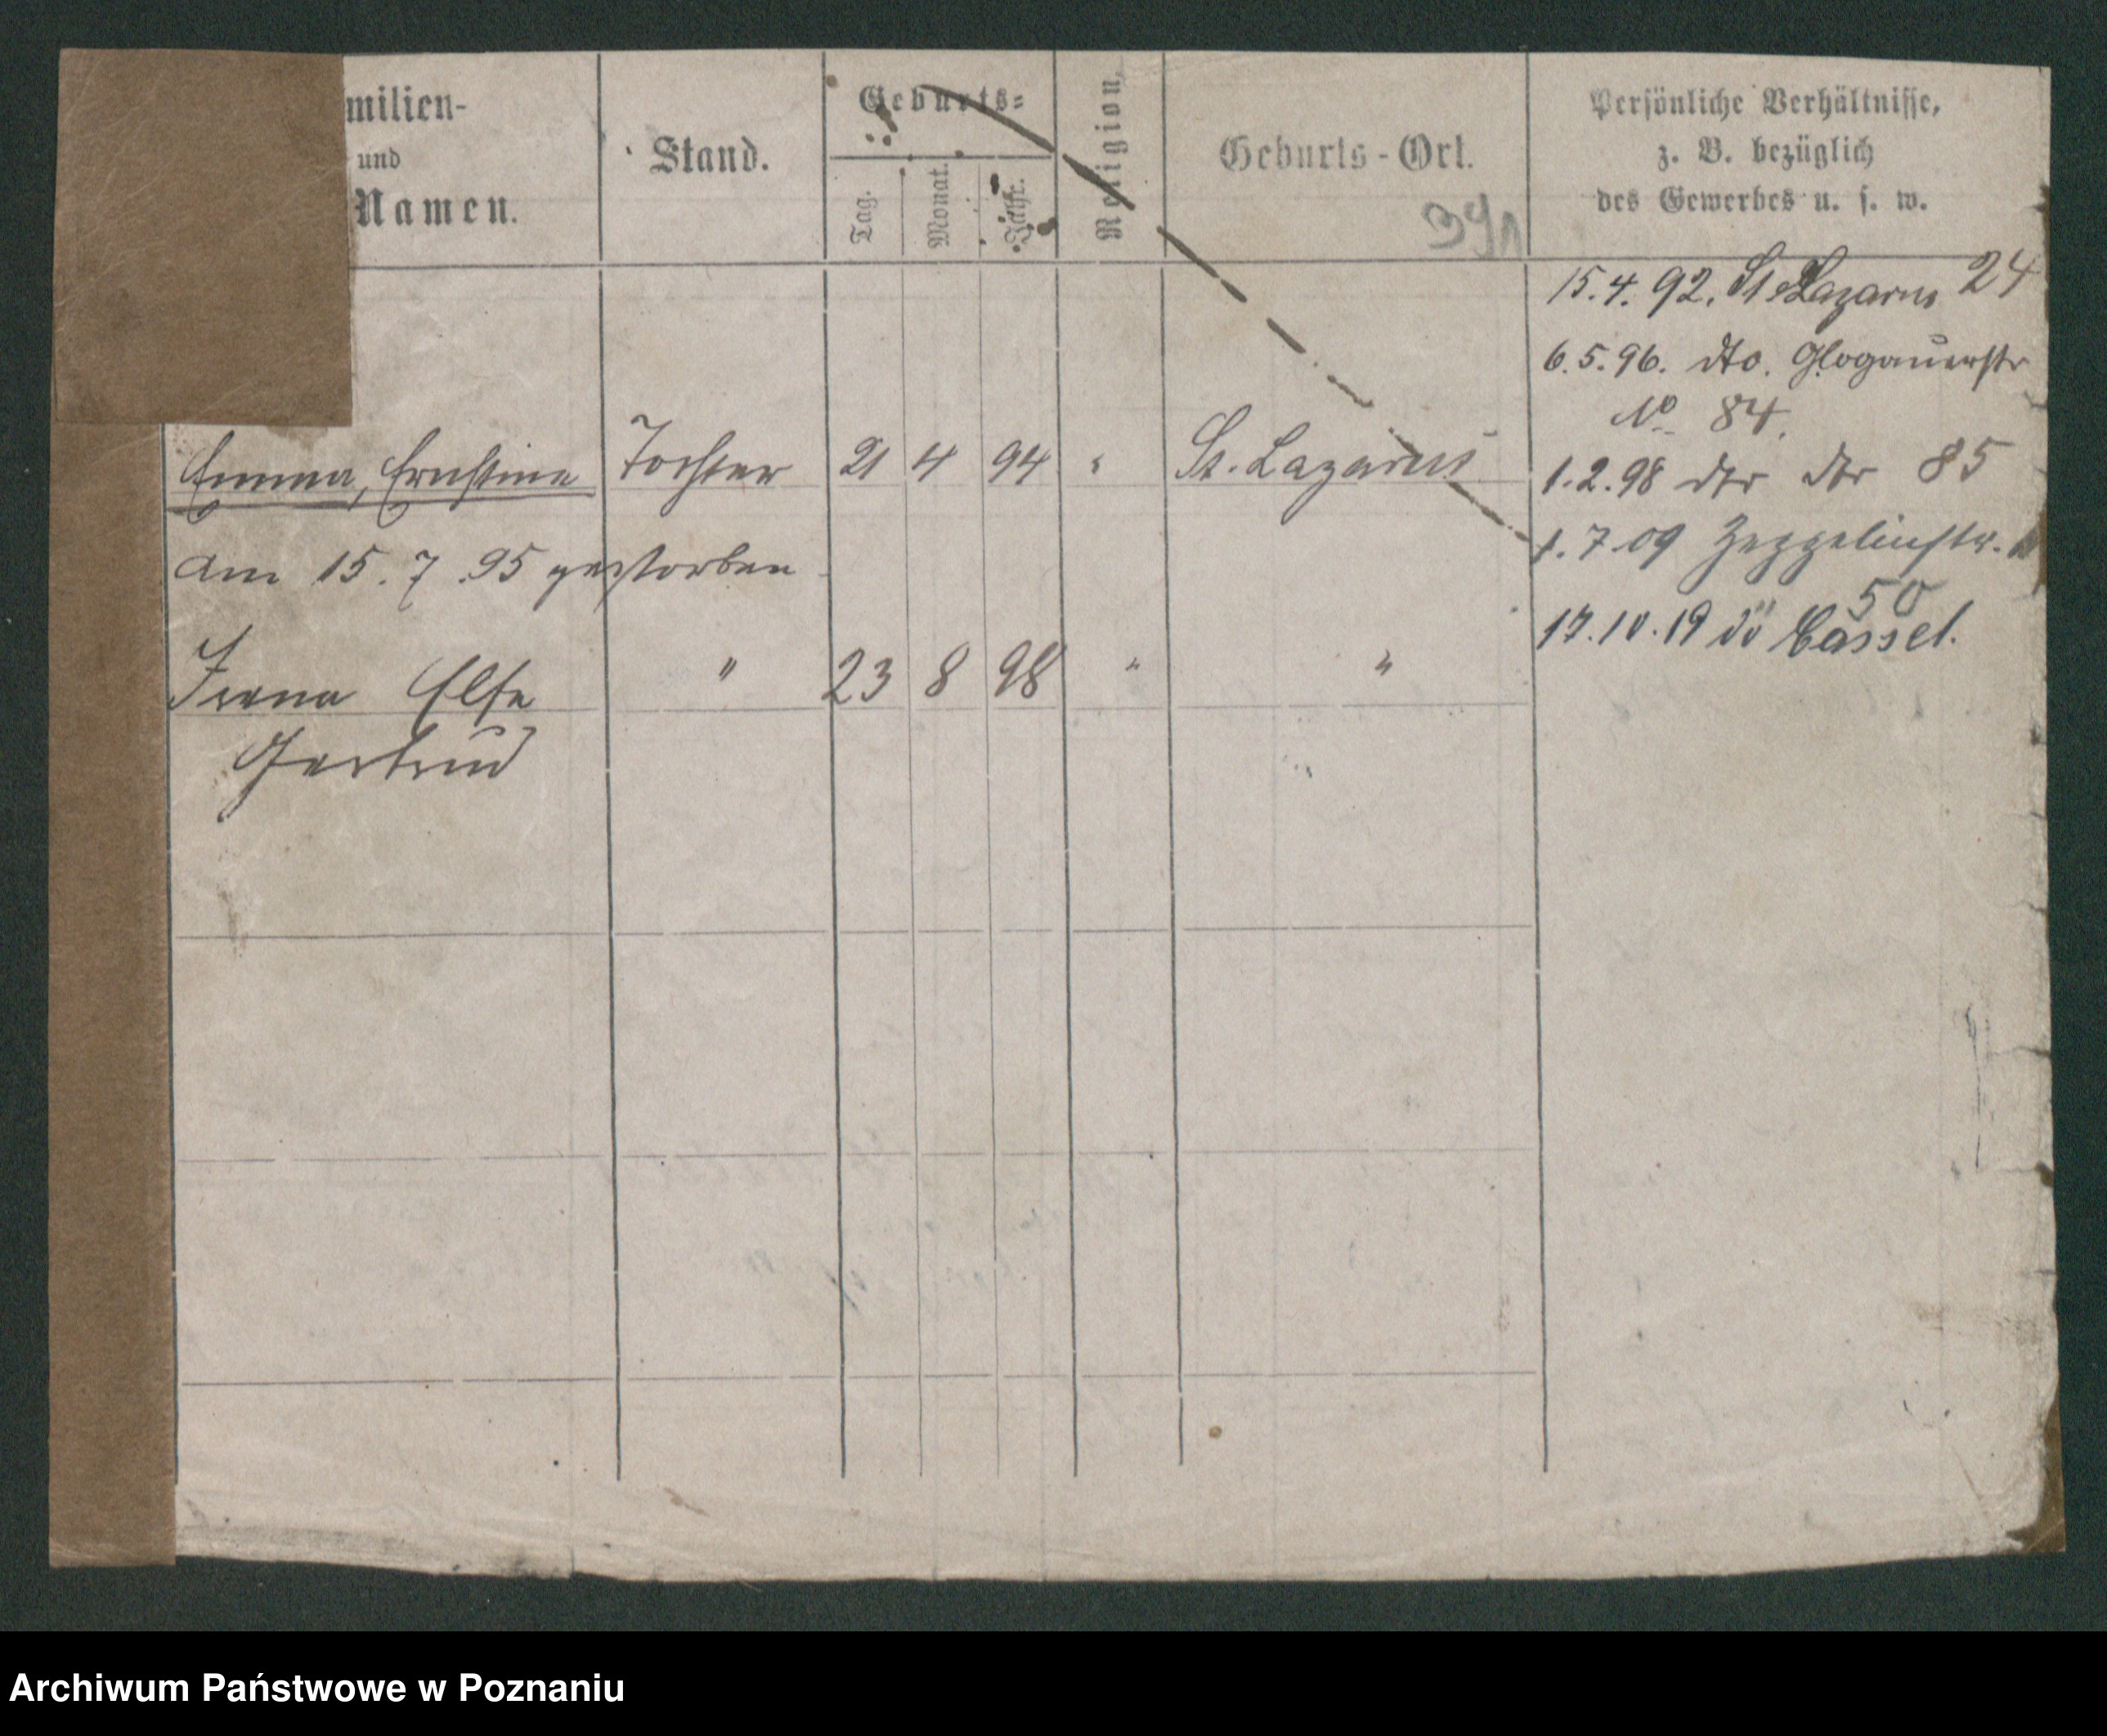 milien-
und
Namen.
Stand.
Geburts-
Tag.
Monat.
Jahr.
Religion.
Geburts-Ort.
Persönliche Verhältnisse,
z. B. bezüglich
des Gewerbes u. s. w.
15.4.92. St. Lazarus 24
6.5.96. dto. Glogauerstr
No 84.
Emma, Ernstine Tochter 21 4 94 " St. Lazarus
1.2.98 dto dto 85
am 15.7.95 gestorben
1.7.09 Zeppelinstr.
50
17.10.19 Cassel.
Irena Else " 23 8 98 " "
Gertrud
Archiwum Państwowe w Poznaniu